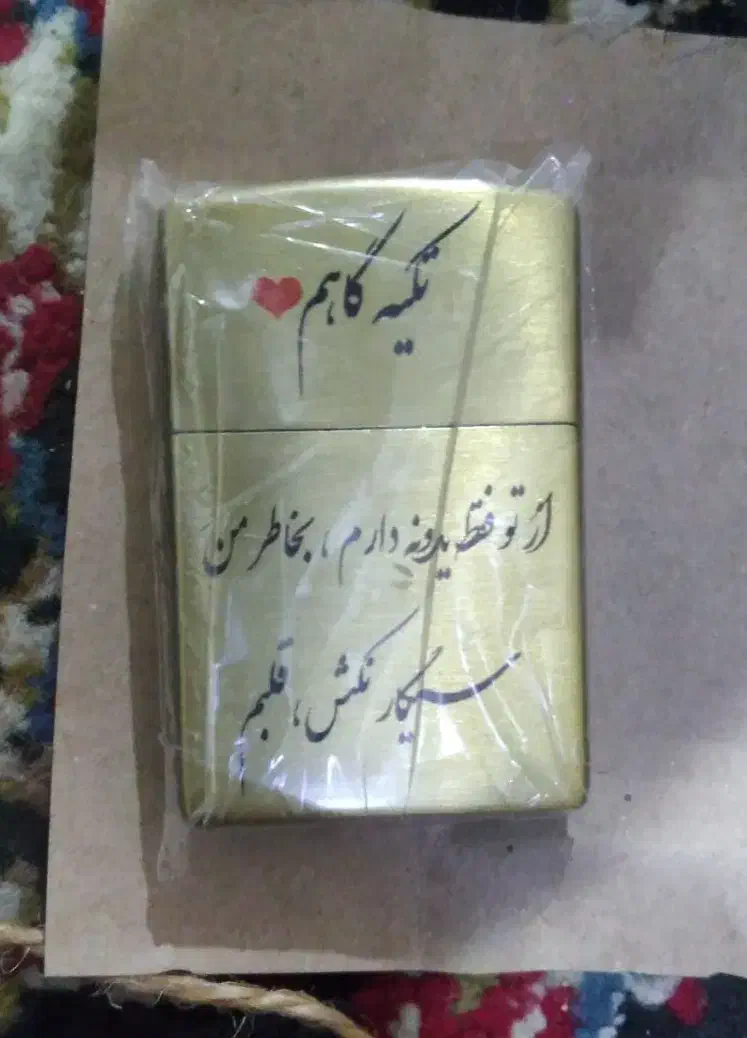 تکیه گاهم
از تو فقط یدونه دارم ، بخاطر من
سیگار نکش ، قلبم